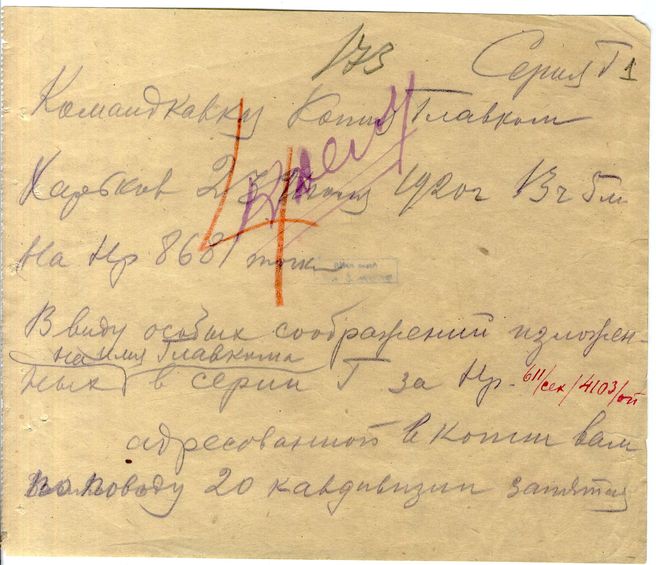 173 Серия Г1
Командкавку Копия Главком
Харьков 23 Июня 1920 г 13 ч 5 м
На Нр 868 точка
4
В виду особых соображений изложен-
на имя Главкома
ных в серии Г за Нр. 611/сек/4103/оп
адресованной в копии вам
по поводу 20 кавдивизии запятая